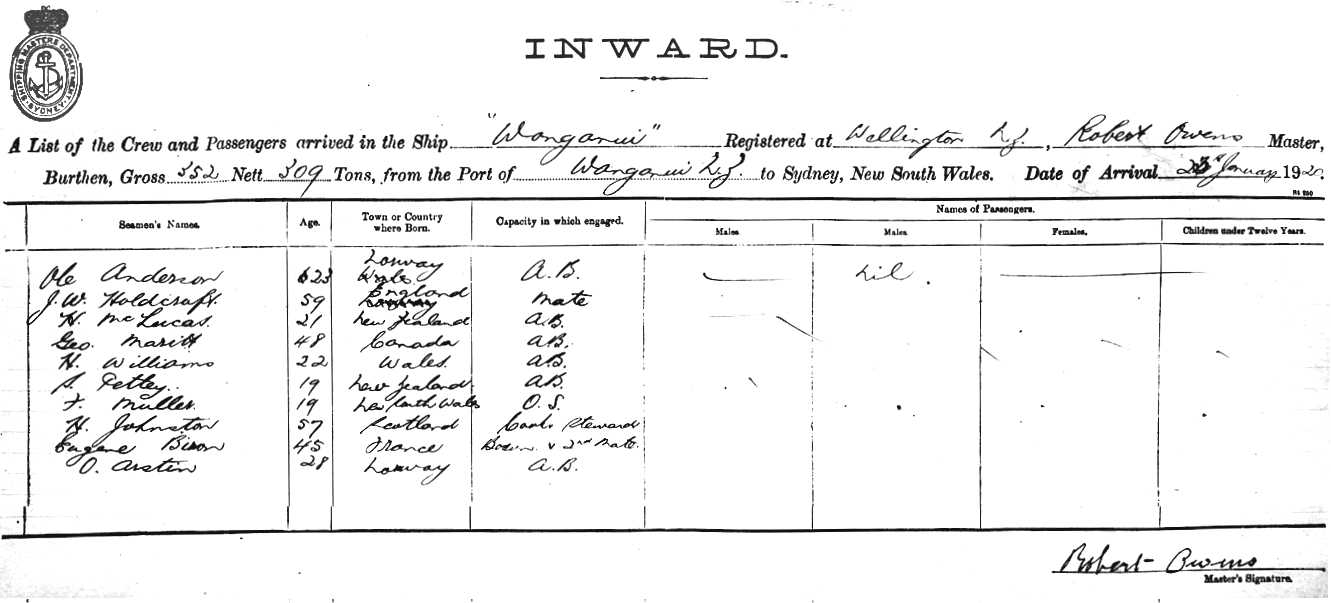 SHIPPING MASTERS DEPARTMENT. SYDNEY.
INWARD.
A List of the Crew and Passengers arrived in the Ship "Wanganui" Registered at Wellington N.Z., Robert Owens Master,
Burthen, Gross 352 Nett 309 Tons, from the Port of Wanganui N.Z. to Sydney, New South Wales. Date of Arrival January 1920.
Seamen's Names. Age. Town or Country where Born. Capacity in which engaged. Names of Passengers.
Males Males Females. Children under Twelve Years.
Norway
Ole Anderson 23 Wales A.B. Nil.
England
J.W. Holdcraft. 59 Norway Mate
H. McLucas. 21 New Zealand A.B.
Geo. 48 Canada A.B.
H. Williams 22 Wales. A.B.
Petley. 19 New Zealand A.B.
F. Muller. 19 New South Wales O.S.
H. Johnston 57 Scotland Cook & Steward
Eugene 45 France Bosun & 2nd Mate.
O. Arsten 28 Norway A.B.
Robert Owens
Master's Signature.